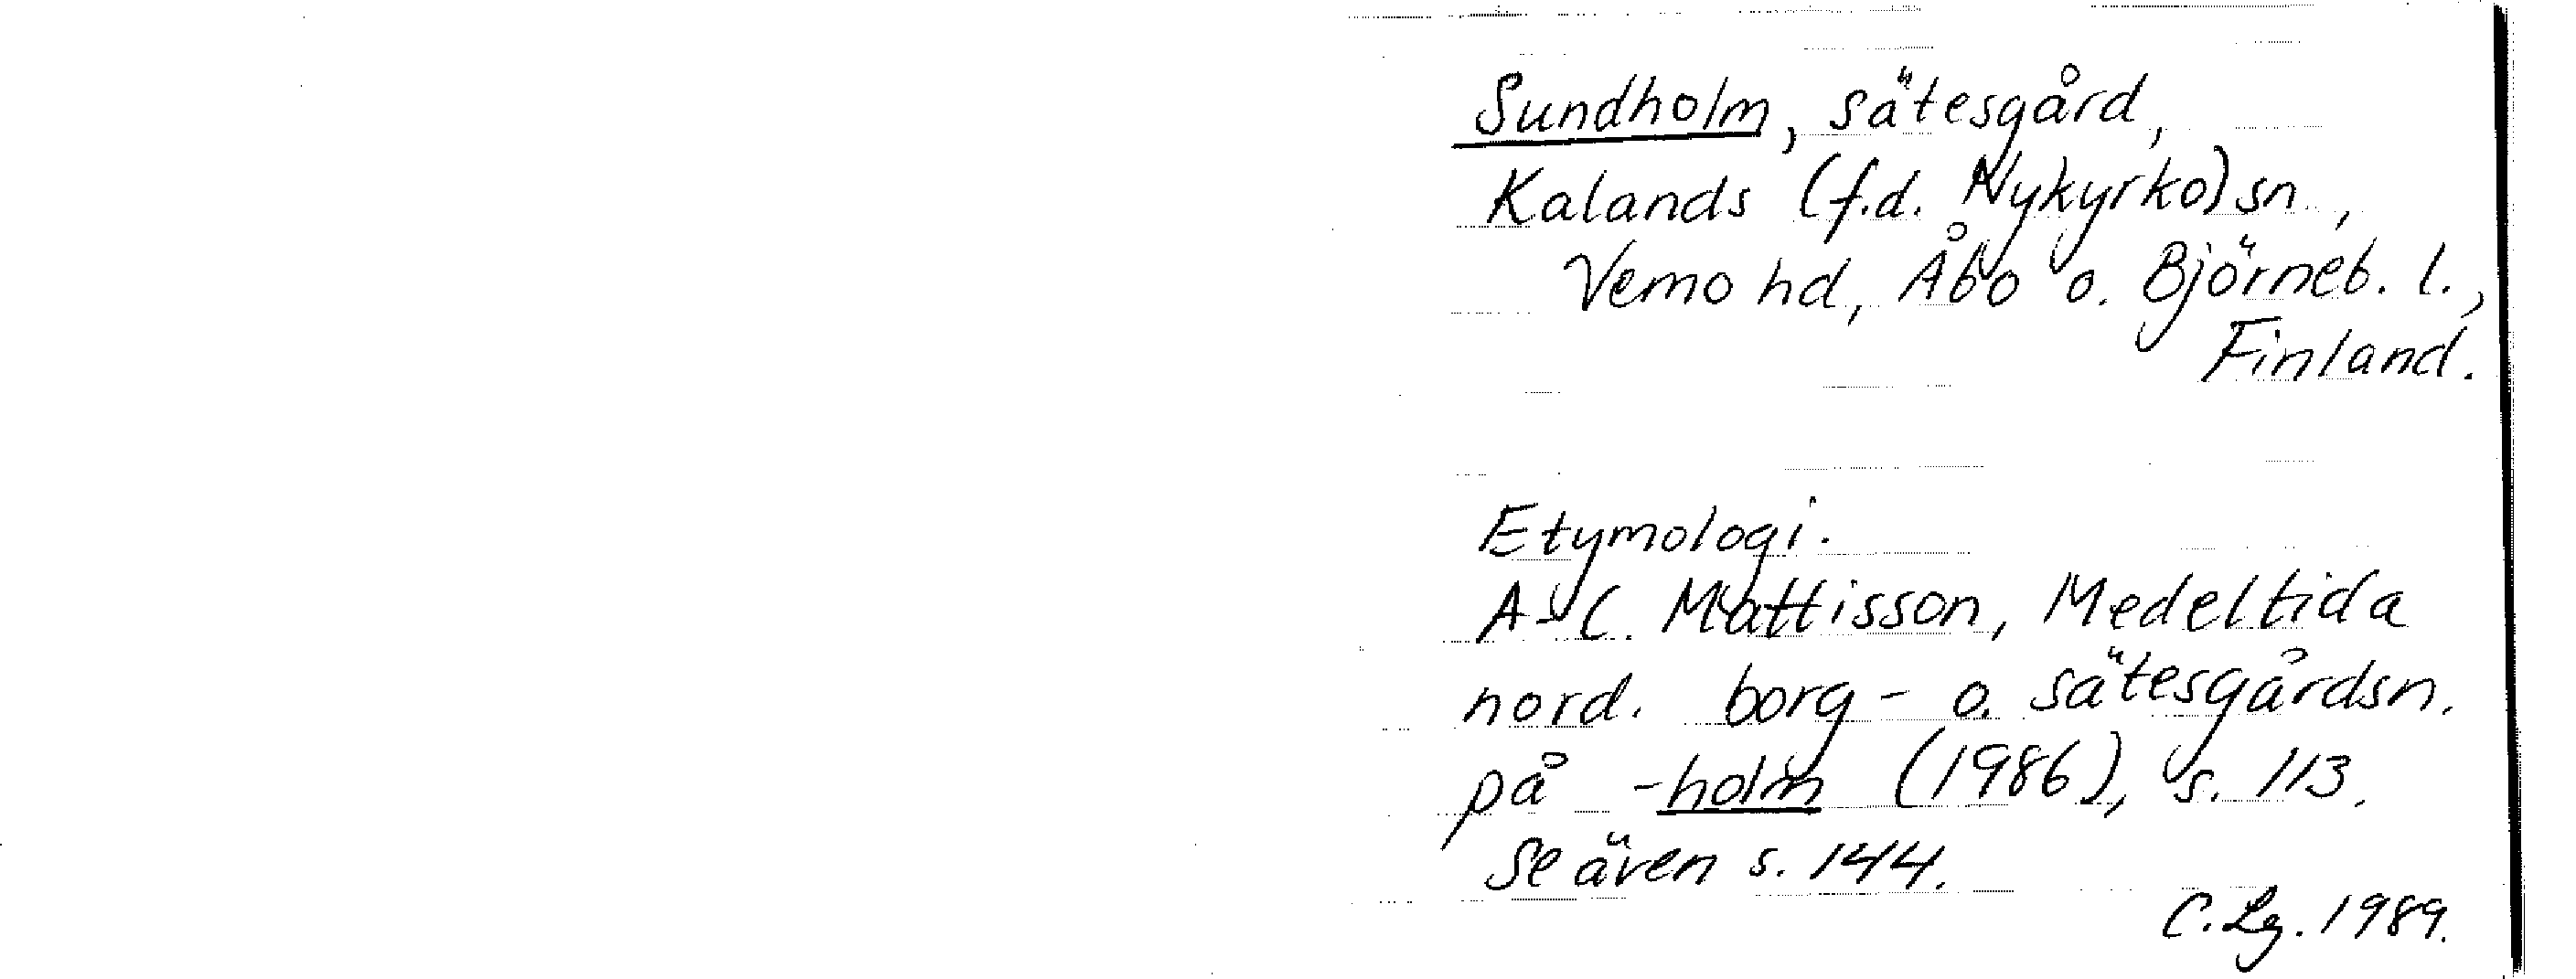 Sundholm, sätesgård,
Kalands (f.d. Nykyrko) sn.,
Vemo hd, Åbo o. Björneb. l.,
Finland.
Etymologi.
A-C. Mattisson, Medeltida
nord. borg- o. sätesgårdsn.
på -holm (1986), s. 113.
Se även s. 144.
C. Lg. 1989.